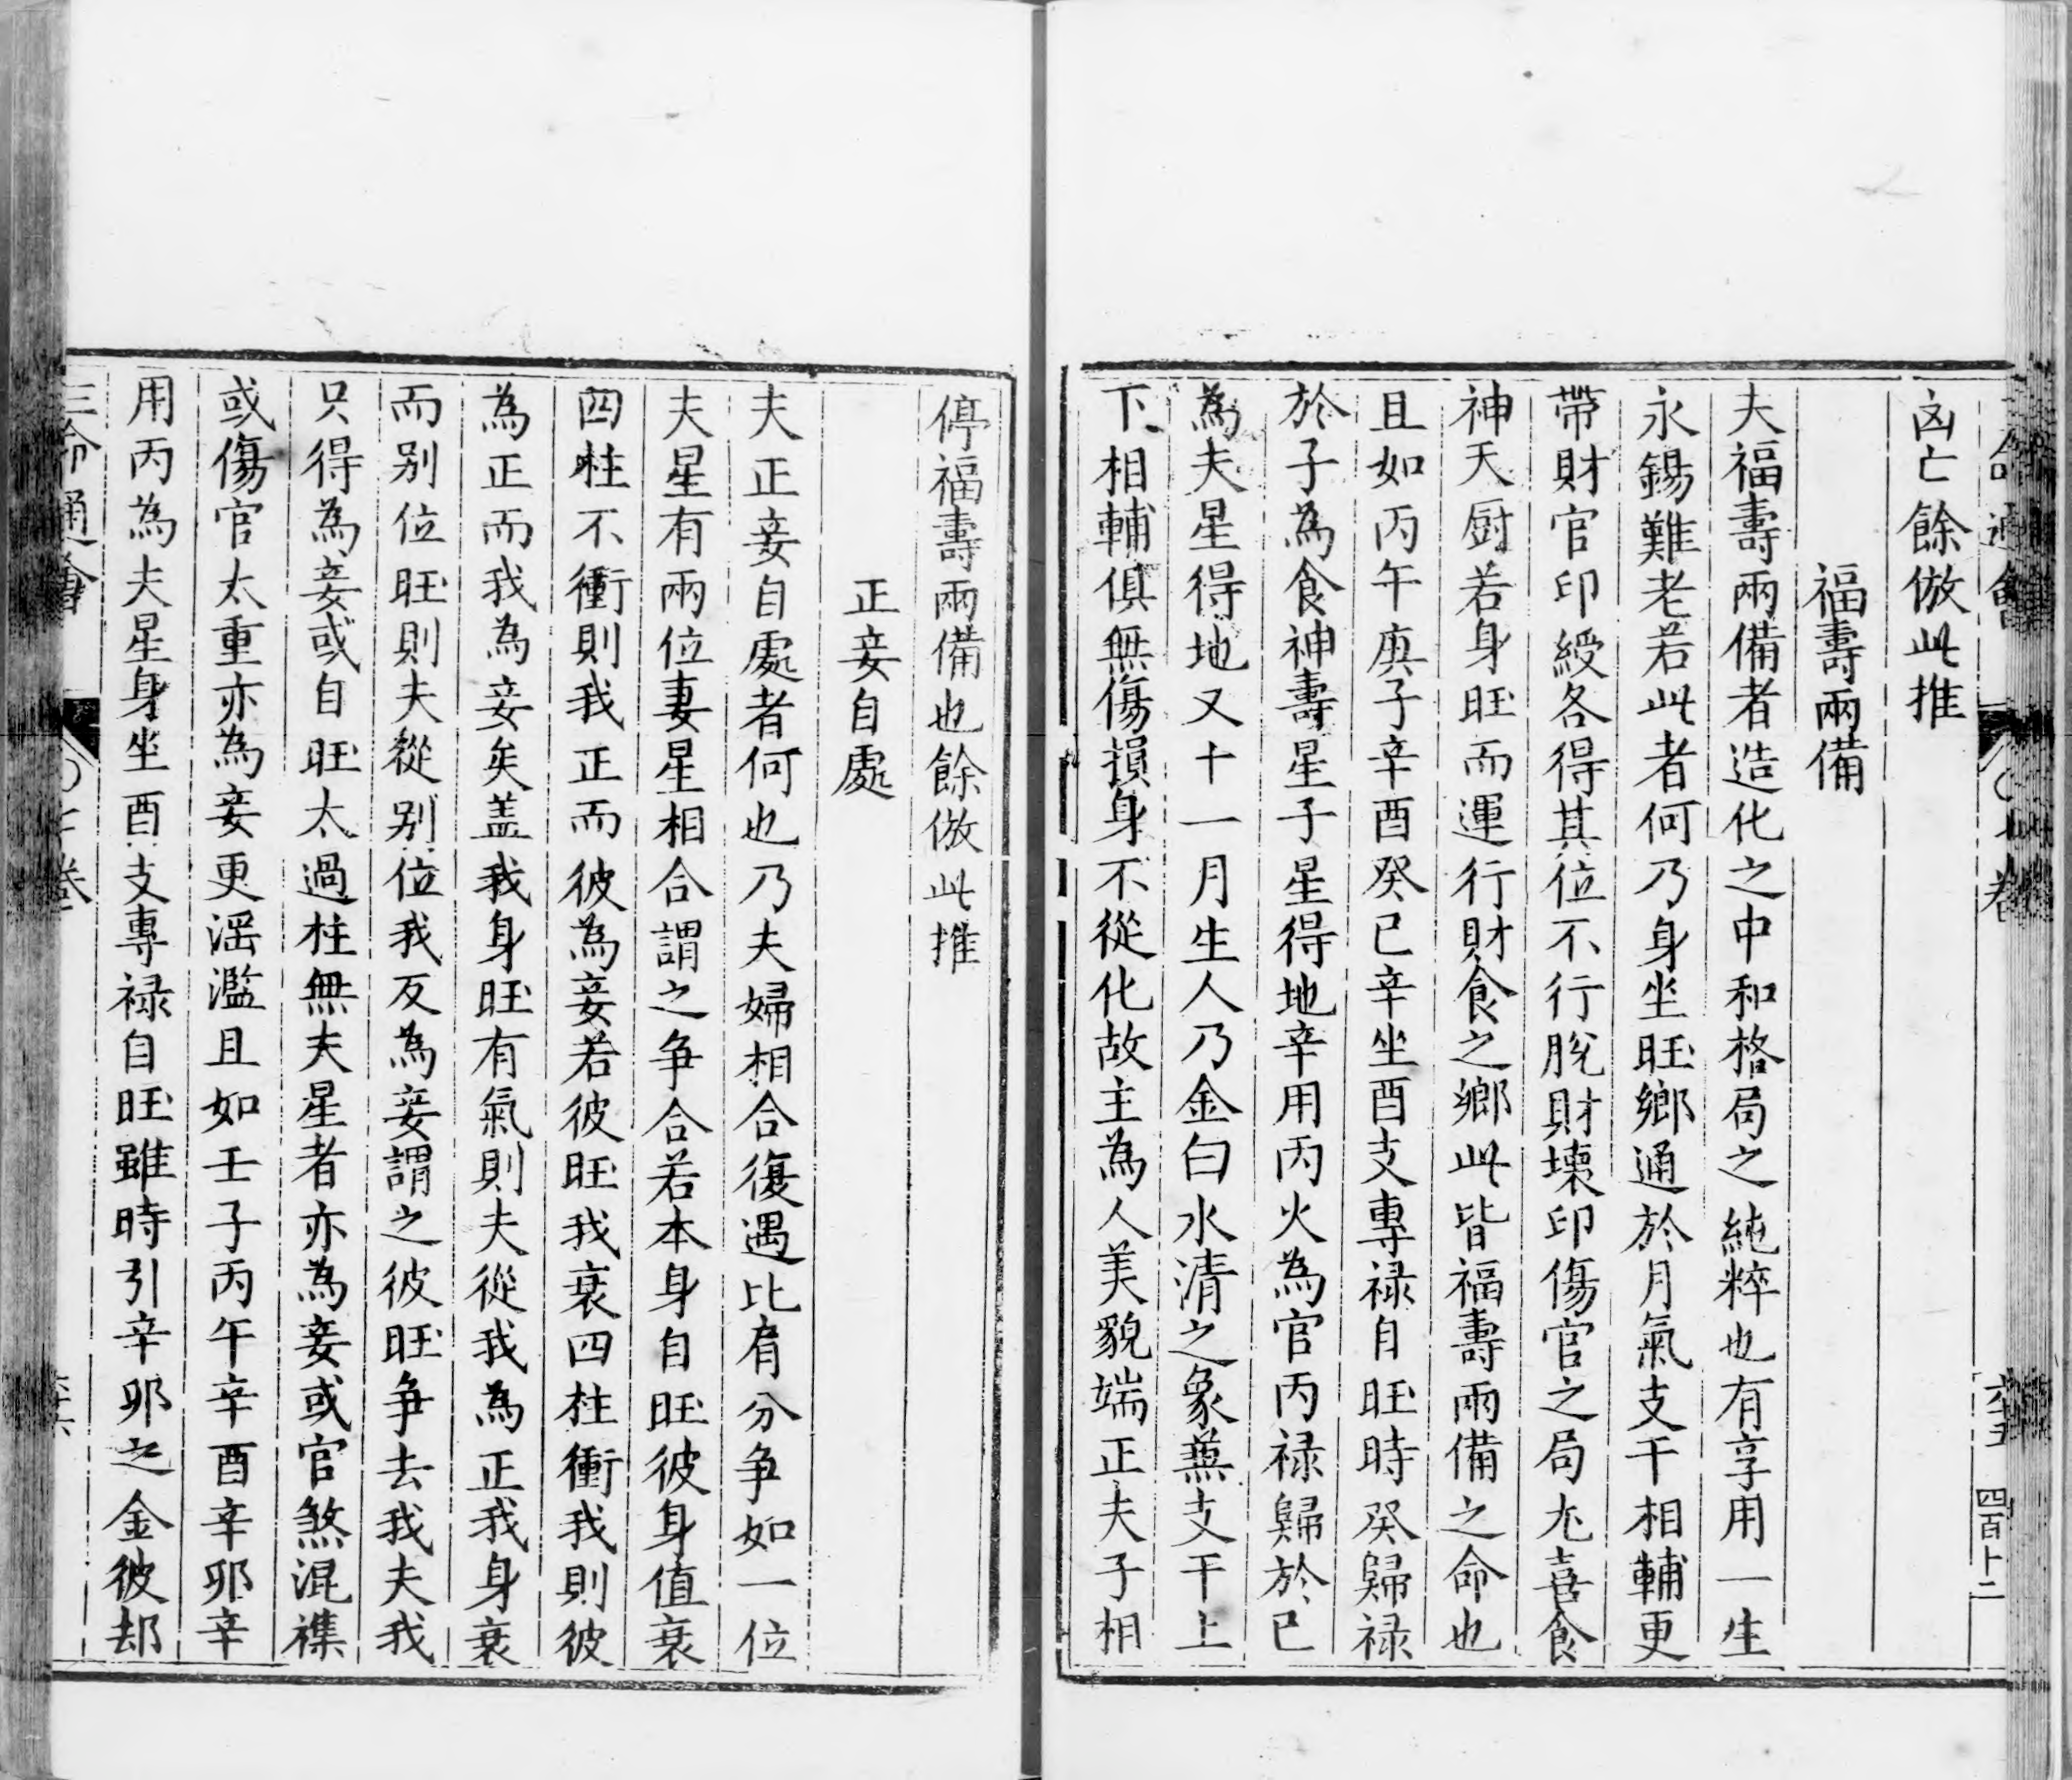 凶亡餘倣此推
福壽兩備
夫福壽兩備者造化之中和格局之純粹也有享用一生
永錫難老若此者何乃身坐旺鄉通於月氣支干相輔更
帶財官印綬各得其位不行脫財壞印傷官之局尤喜食
神天厨若身旺而運行財食之鄉此皆福壽兩備之命也
且如丙午庚子辛酉癸巳辛坐酉支專禄自旺時癸歸禄
於子為食神壽星子星得地辛用丙火為官丙禄歸於巳
為夫星得地又十一月生人乃金白水清之象兼支干上
下相輔俱無傷損身不從化故主為人美貌端正夫子相
停福壽兩備也餘倣此推
正妾自處
夫正妾自處者何也乃夫婦相合復遇比肩分争如一位
夫星有兩位妻星相合謂之争合若本身自旺彼身值衰
四柱不衝則我正而彼為妾若彼旺我衰四柱衝我則彼
為正而我為妾矣盖我身旺有氣則夫從我為正我身衰
而别位旺則夫縱别位我反為妾謂之彼旺争去我夫我
只得為妾或自旺太過柱無夫星者亦為妾或官煞混襍
或傷官太重亦為妾更滛濫且如壬子丙午辛酉辛卯辛
用丙為夫星身坐酉支專禄自旺雖時引辛卯之金彼却
三命通會 七卷